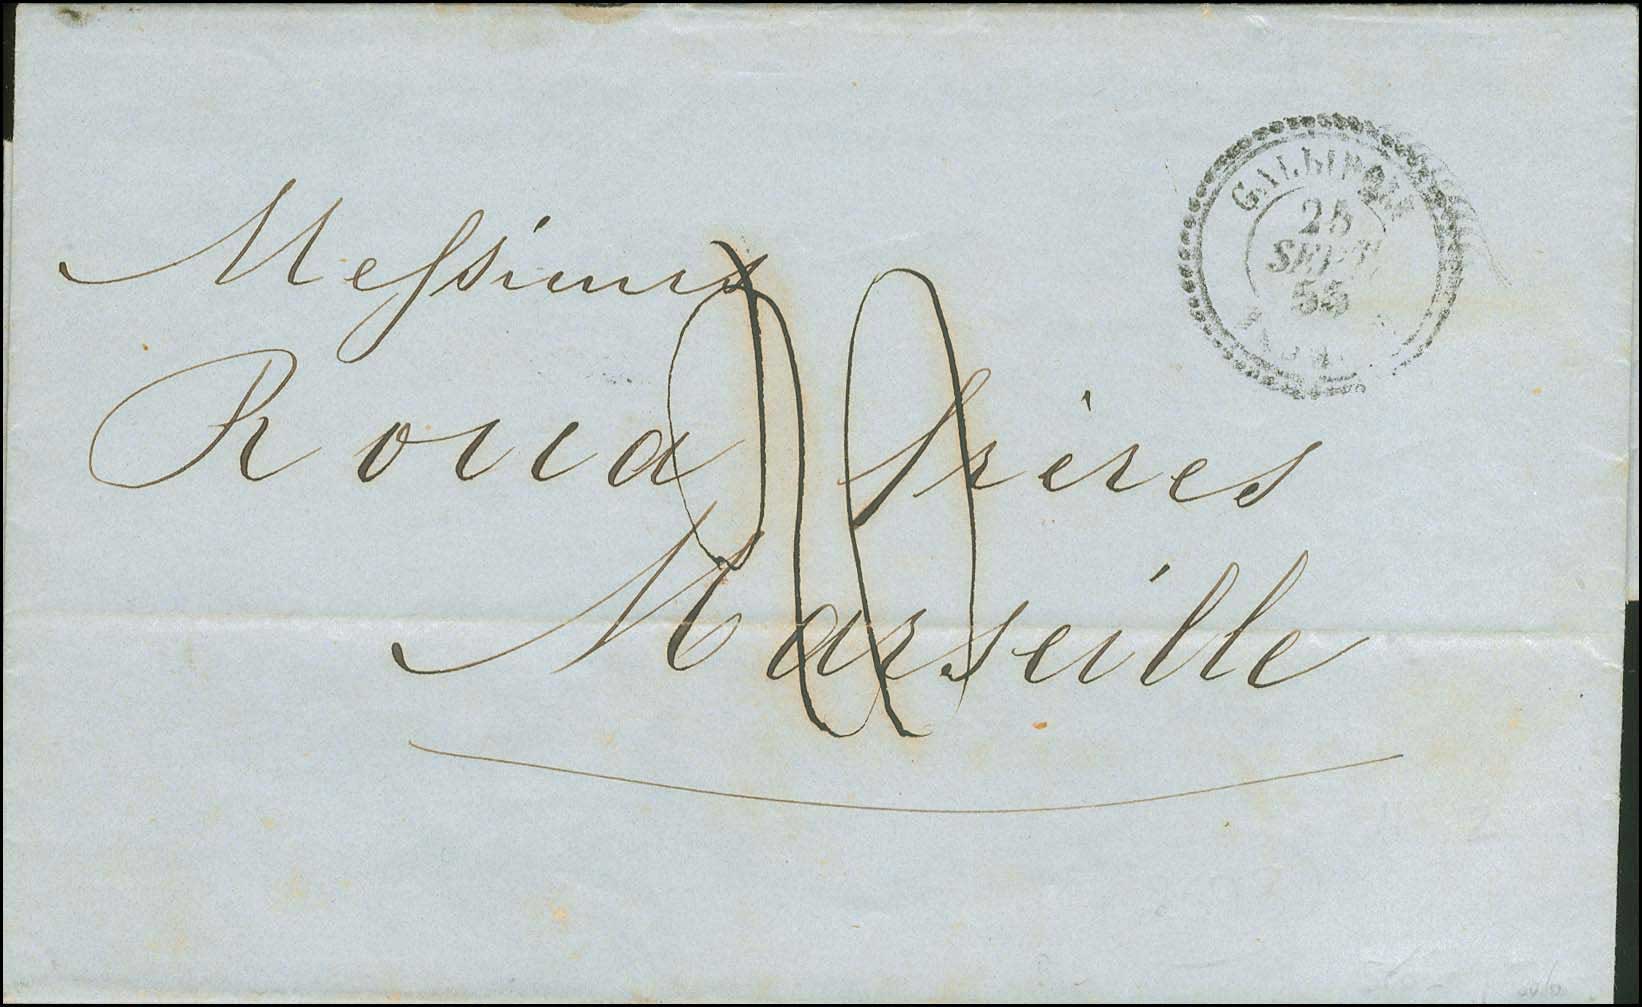 GALLIPOLI
25
SEPT.
55
Messieurs
Roux frères
Marseille